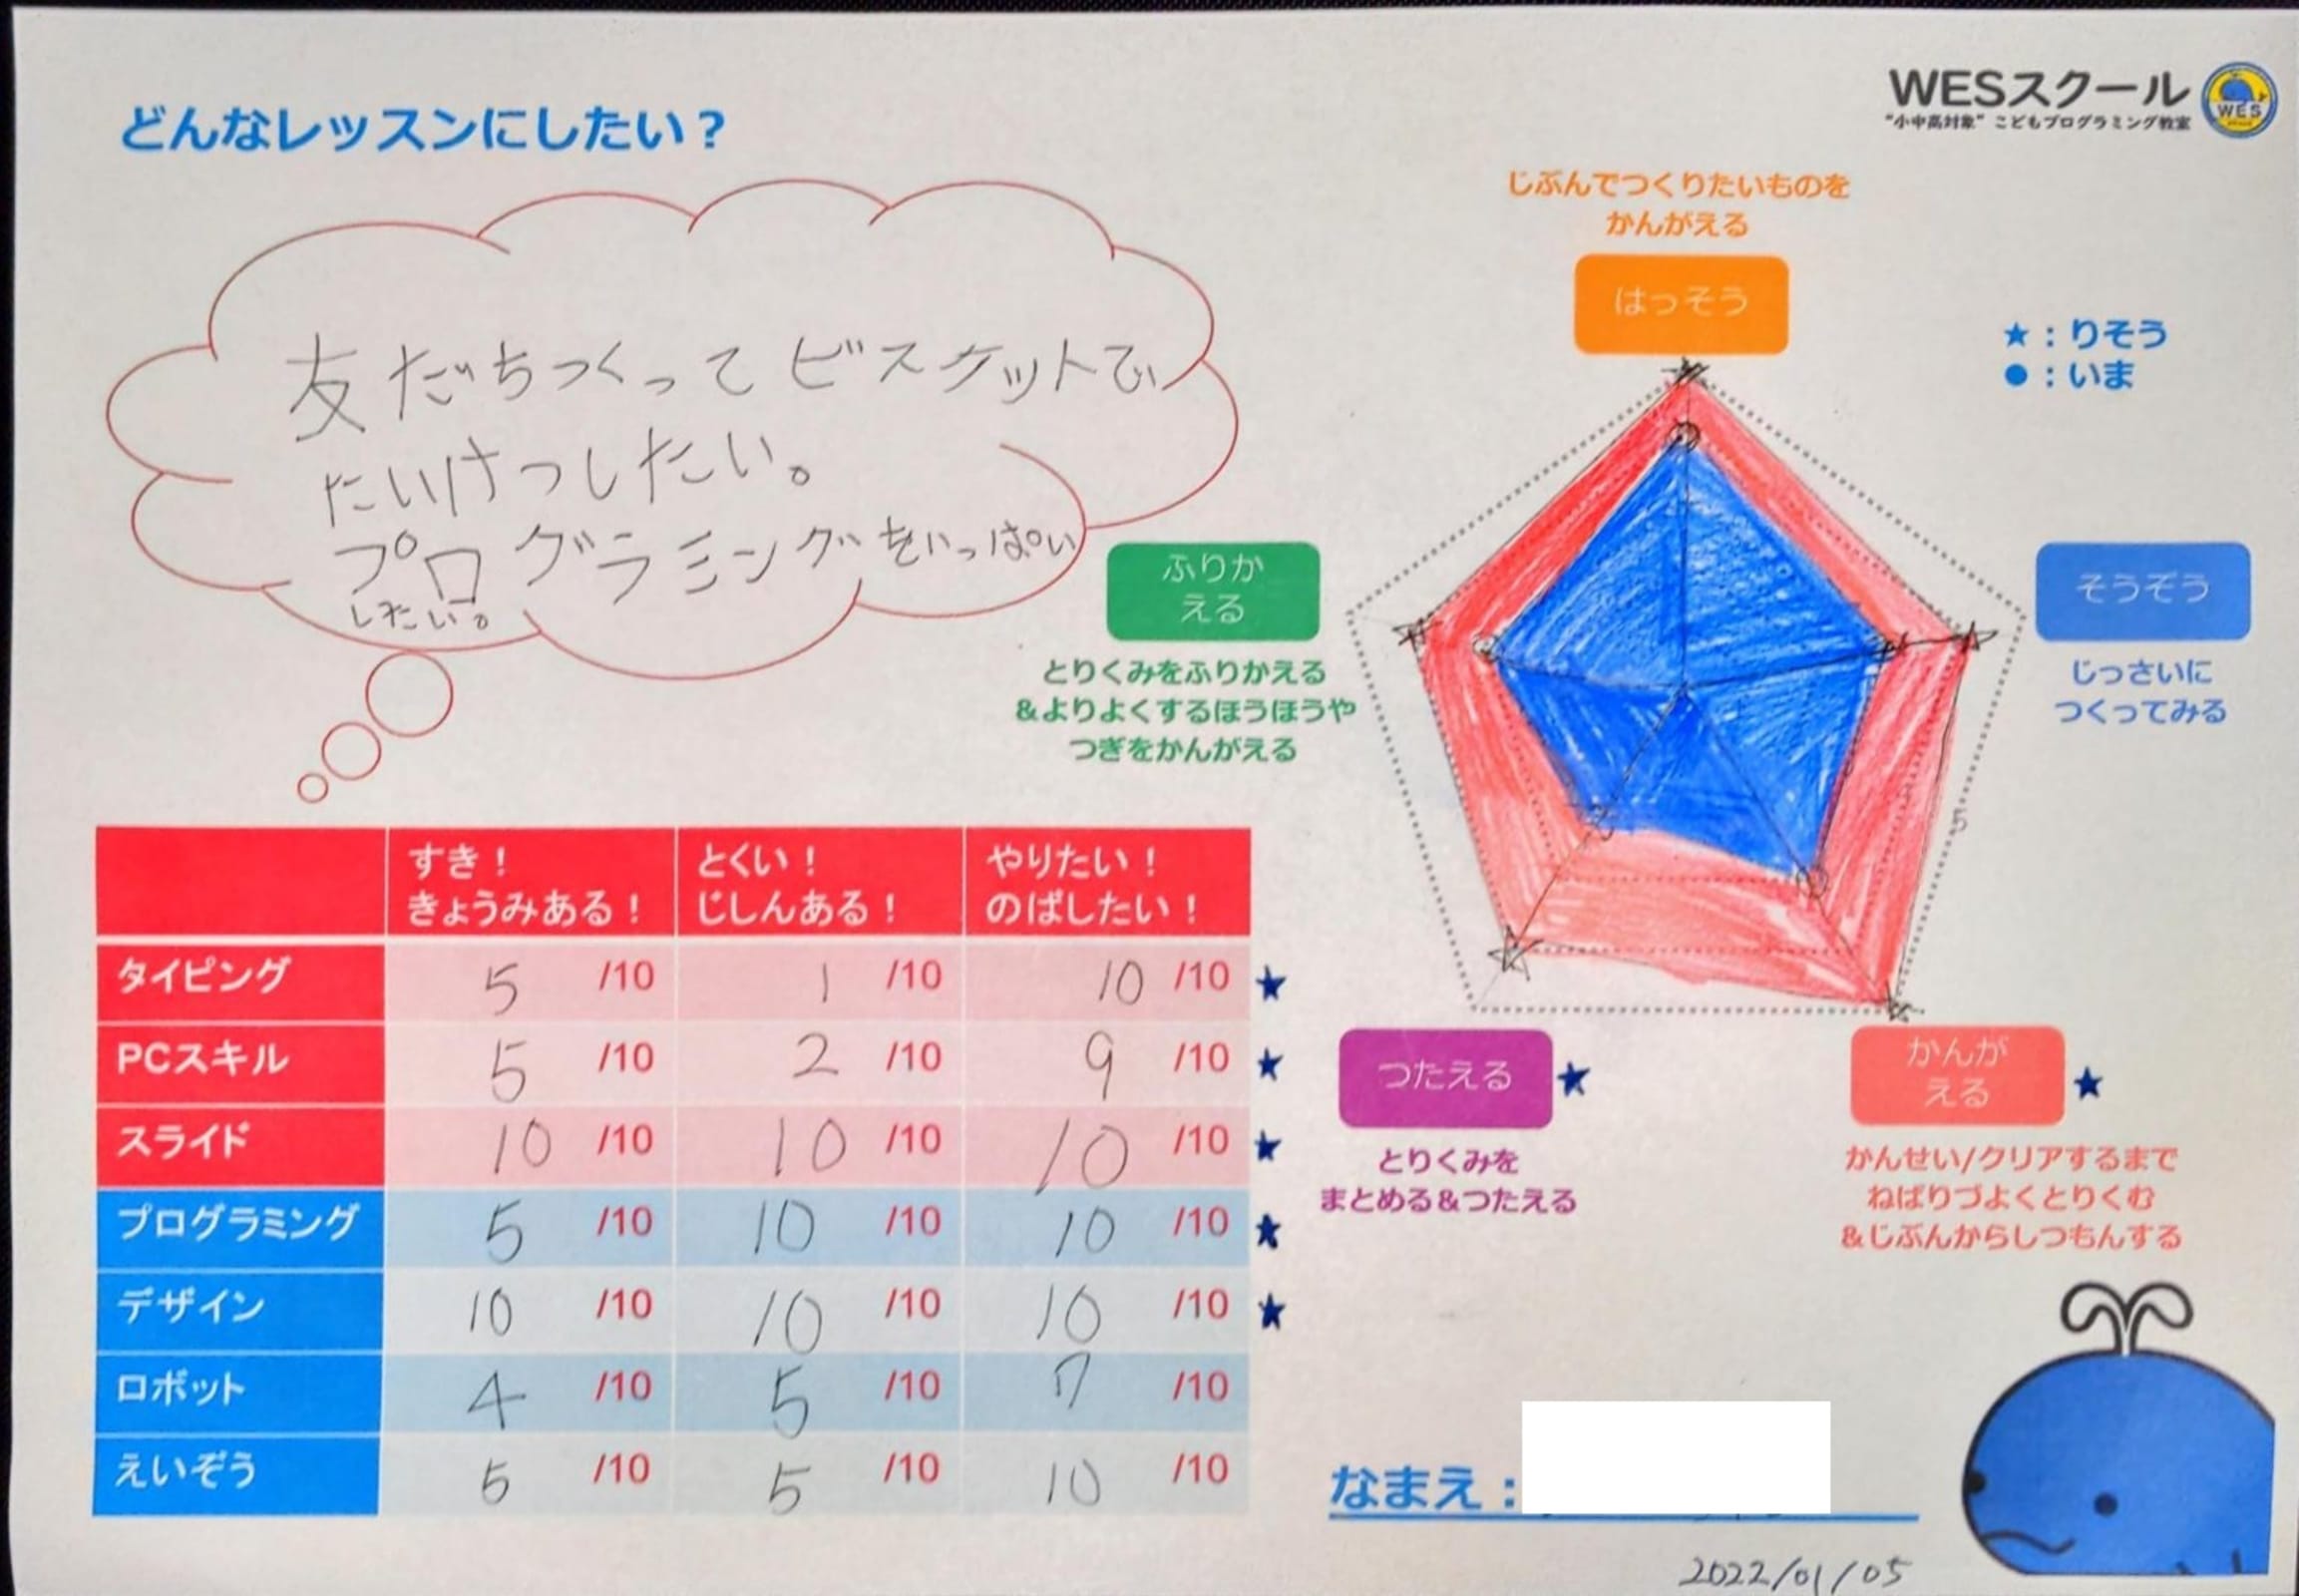 どんなレッスンにしたい？
WESスクール
"小中高対象" こどもプログラミング教室
WES
友だちつくってビスケットで
たいけつしたい。
プログラミングをいっぱい
したい。
じぶんでつくりたいものを
かんがえる
はっそう
★：りそう
●：いま
ふりか
える
とりくみをふりかえる
&よりよくするほうほうや
つぎをかんがえる
そうぞう
じっさいに
つくってみる
5
つたえる ★
とりくみを
まとめる&つたえる
かんが
える ★
かんせい/クリアするまで
ねばりづよくとりくむ
&じぶんからしつもんする
すき！ とくい！ やりたい！
きょうみある！ じしんある！ のばしたい！
タイピング 5 /10 1 /10 10 /10 ★
PCスキル 5 /10 2 /10 9 /10 ★
スライド 10 /10 10 /10 10 /10 ★
プログラミング 5 /10 10 /10 10 /10 ★
デザイン 10 /10 10 /10 10 /10 ★
ロボット 4 /10 5 /10 7 /10
えいぞう 5 /10 5 /10 10 /10
なまえ：
2022/01/05